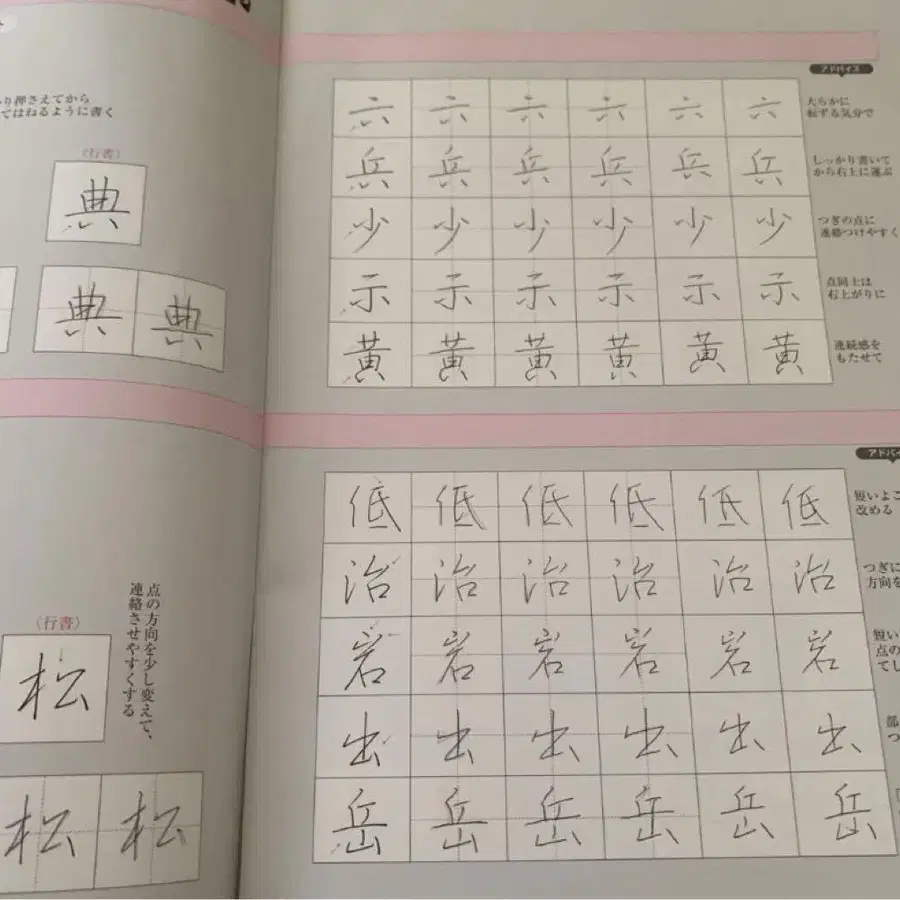 り押さえてから
てはねるように書く
(行書)
典
典 典
点の方向を少し変えて、
連絡させやすくする
(行書)
松
松 松
アドバイス
六 六 六 六 六 六
たらかに
転ずる気分で
兵 兵 兵 兵 兵 兵
しっかり書いて
から右上に運ぶ
少 少 少 少 少 少
つぎの点に
連絡つけやすく
示 示 示 示 示 示
点同士は
右上がりに
黄 黄 黄 黄 黄 黄
連続感を
もたせて
アドバイ
低 低 低 低 低 低
短いよこ
改める
治 治 治 治 治 治
つぎに
方向を
岩 岩 岩 岩 岩 岩
短い
点の
てし
出 出 出 出 出 出
部
つ
岳 岳 岳 岳 岳 岳